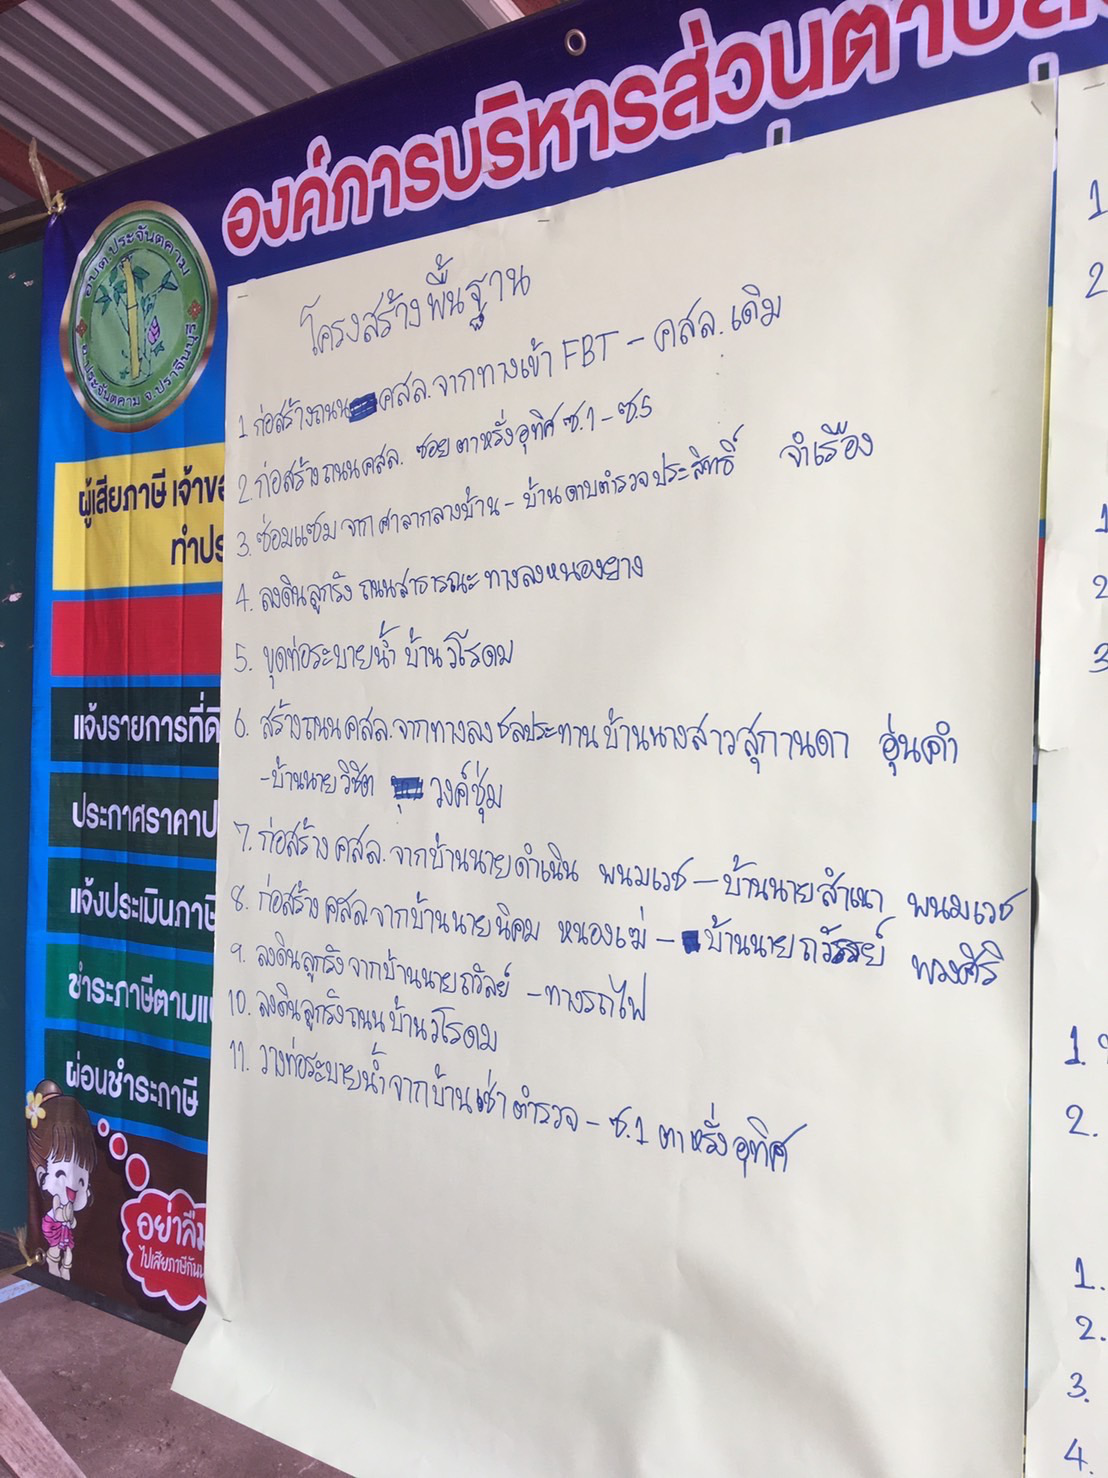 องค์การบริหารส่วนตำบล
อบต.ประจันตคาม
อ.ประจันตคาม จ.ปราจีนบุรี
ผู้เสียภาษี เจ้าขอ
ทำประ
แจ้งรายการที่ดิ
ประกาศราคาป
แจ้งประเมินภาษี
ชำระภาษีตามแ
ผ่อนชำระภาษี
อย่าลืม
ไปเสียภาษีกันน
โครงสร้างพื้นฐาน
1. ก่อสร้างถนน คสล. จากทางเข้า FBT - คสล. เดิม
2. ก่อสร้างถนน คสล. ซอย ตาหรั่งอุทิศ ซ.1 - ซ.5
3. ซ่อมแซม จาก ศาลากลางบ้าน - บ้านดาบตำรวจประสิทธิ์ จำเรือง
4. ลงดินลูกรัง ถนนสาธารณะ ทางลงหนองยาง
5. ขุดท่อระบายน้ำ บ้านวโรดม
6. สร้างถนน คสล. จากทางลงชลประทาน บ้านนางสาวสุกานดา อุ่นคำ
- บ้านนายวิชิต วงค์ชุ่ม
7. ก่อสร้าง คสล. จากบ้านนายดำเนิน พนมเวช - บ้านนายสำเนา พนมเวช
8. ก่อสร้าง คสล. จากบ้านนายนิคม หนองเฆ่ - บ้านนายถวัลย์ พวงศิริ
9. ลงดินลูกรัง จากบ้านนายถวัลย์ - ทางรถไฟ
10. ลงดินลูกรังถนน บ้านวโรดม
11. วางท่อระบายน้ำ จากบ้านเช่าตำรวจ - ซ.1 ตาหรั่งอุทิศ
1
2
1
2
3
1.
2.
1.
2.
3.
4.